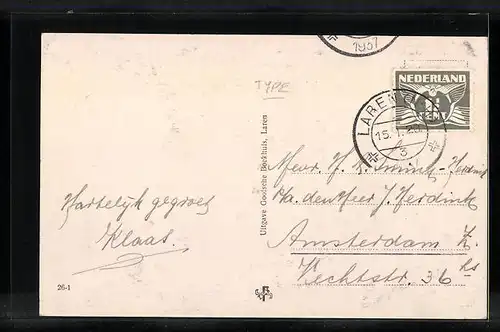 1937
TYPE
NEDERLAND
1
CENT
LAREN
15.
3
Uitgave Gooische Boekhuis, Laren
Hartelijk gegroet
Klaas.
Mevr.
p/a den Heer J. Herdink
Amsterdam Z.
Vechtstr. 36 hs
26-1